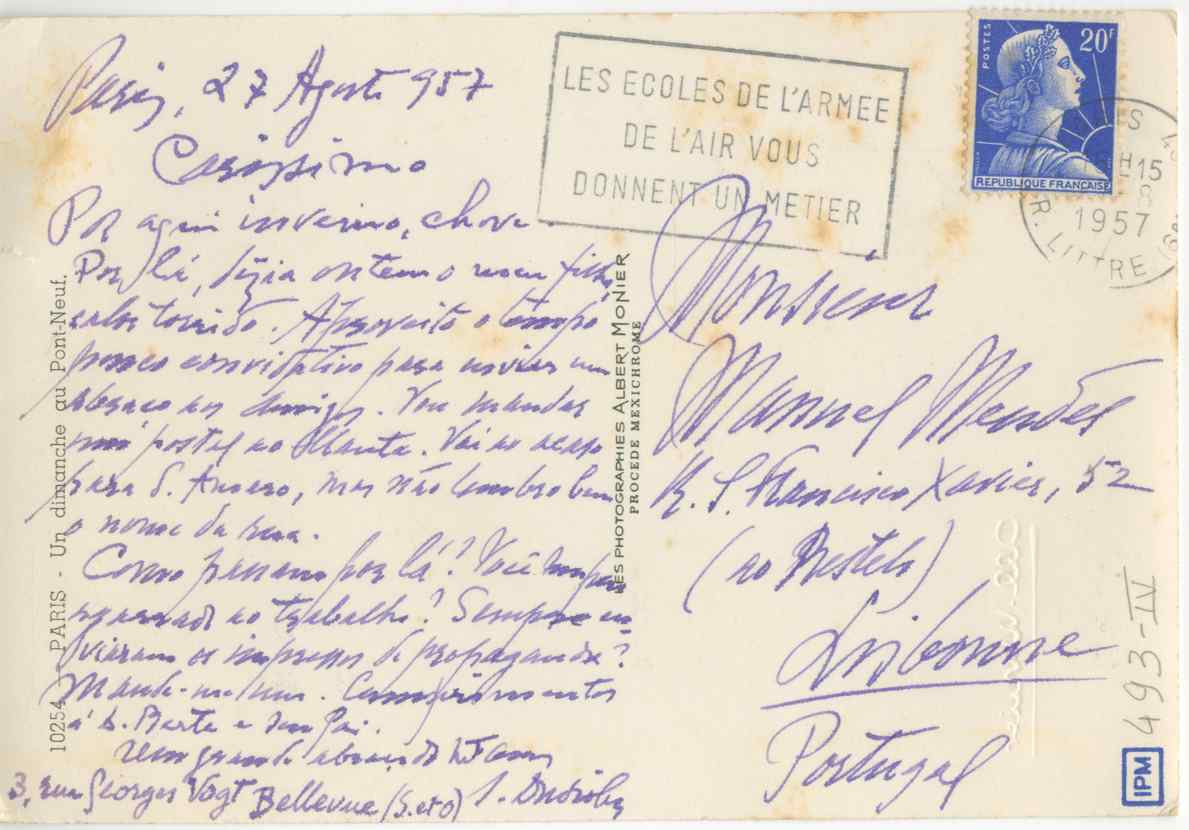 Paris, 27 Agosto 957
Caríssimo
Por aqui inverno, chove.
Por lá, dizia ontem o meu filho,
calor torrido. Aproveito o tempo
pouco convidativo para enviar um
abraço aos amigos. Vou mandar
um postal ao
para S. Amaro, mas não lembro bem
o nome da rua.
Como passam por lá? Você sempre
agarrado ao trabalho? Sempre en-
viaram os impressos de propaganda?
Mande-me um. Cumprimentos
á D. Berta e seu Pai.
um grande abraço do
3, rue Georges Vogt Bellevue (S. et O)
10254 - PARIS - Un dimanche au Pont-Neuf.
LES PHOTOGRAPHIES ALBERT MONIER
PROCEDE MEXICHROME
LES ECOLES DE L'ARMEE
DE L'AIR VOUS
DONNENT UN METIER
POSTES
20F
REPUBLIQUE FRANÇAISE
H15
8
1957
R. LITTRE
Monsieur
Manuel Mendes
R. S. Francisco Xavier, 52
(ao Restelo)
Lisbonne
Portugal
493-IV
IPM